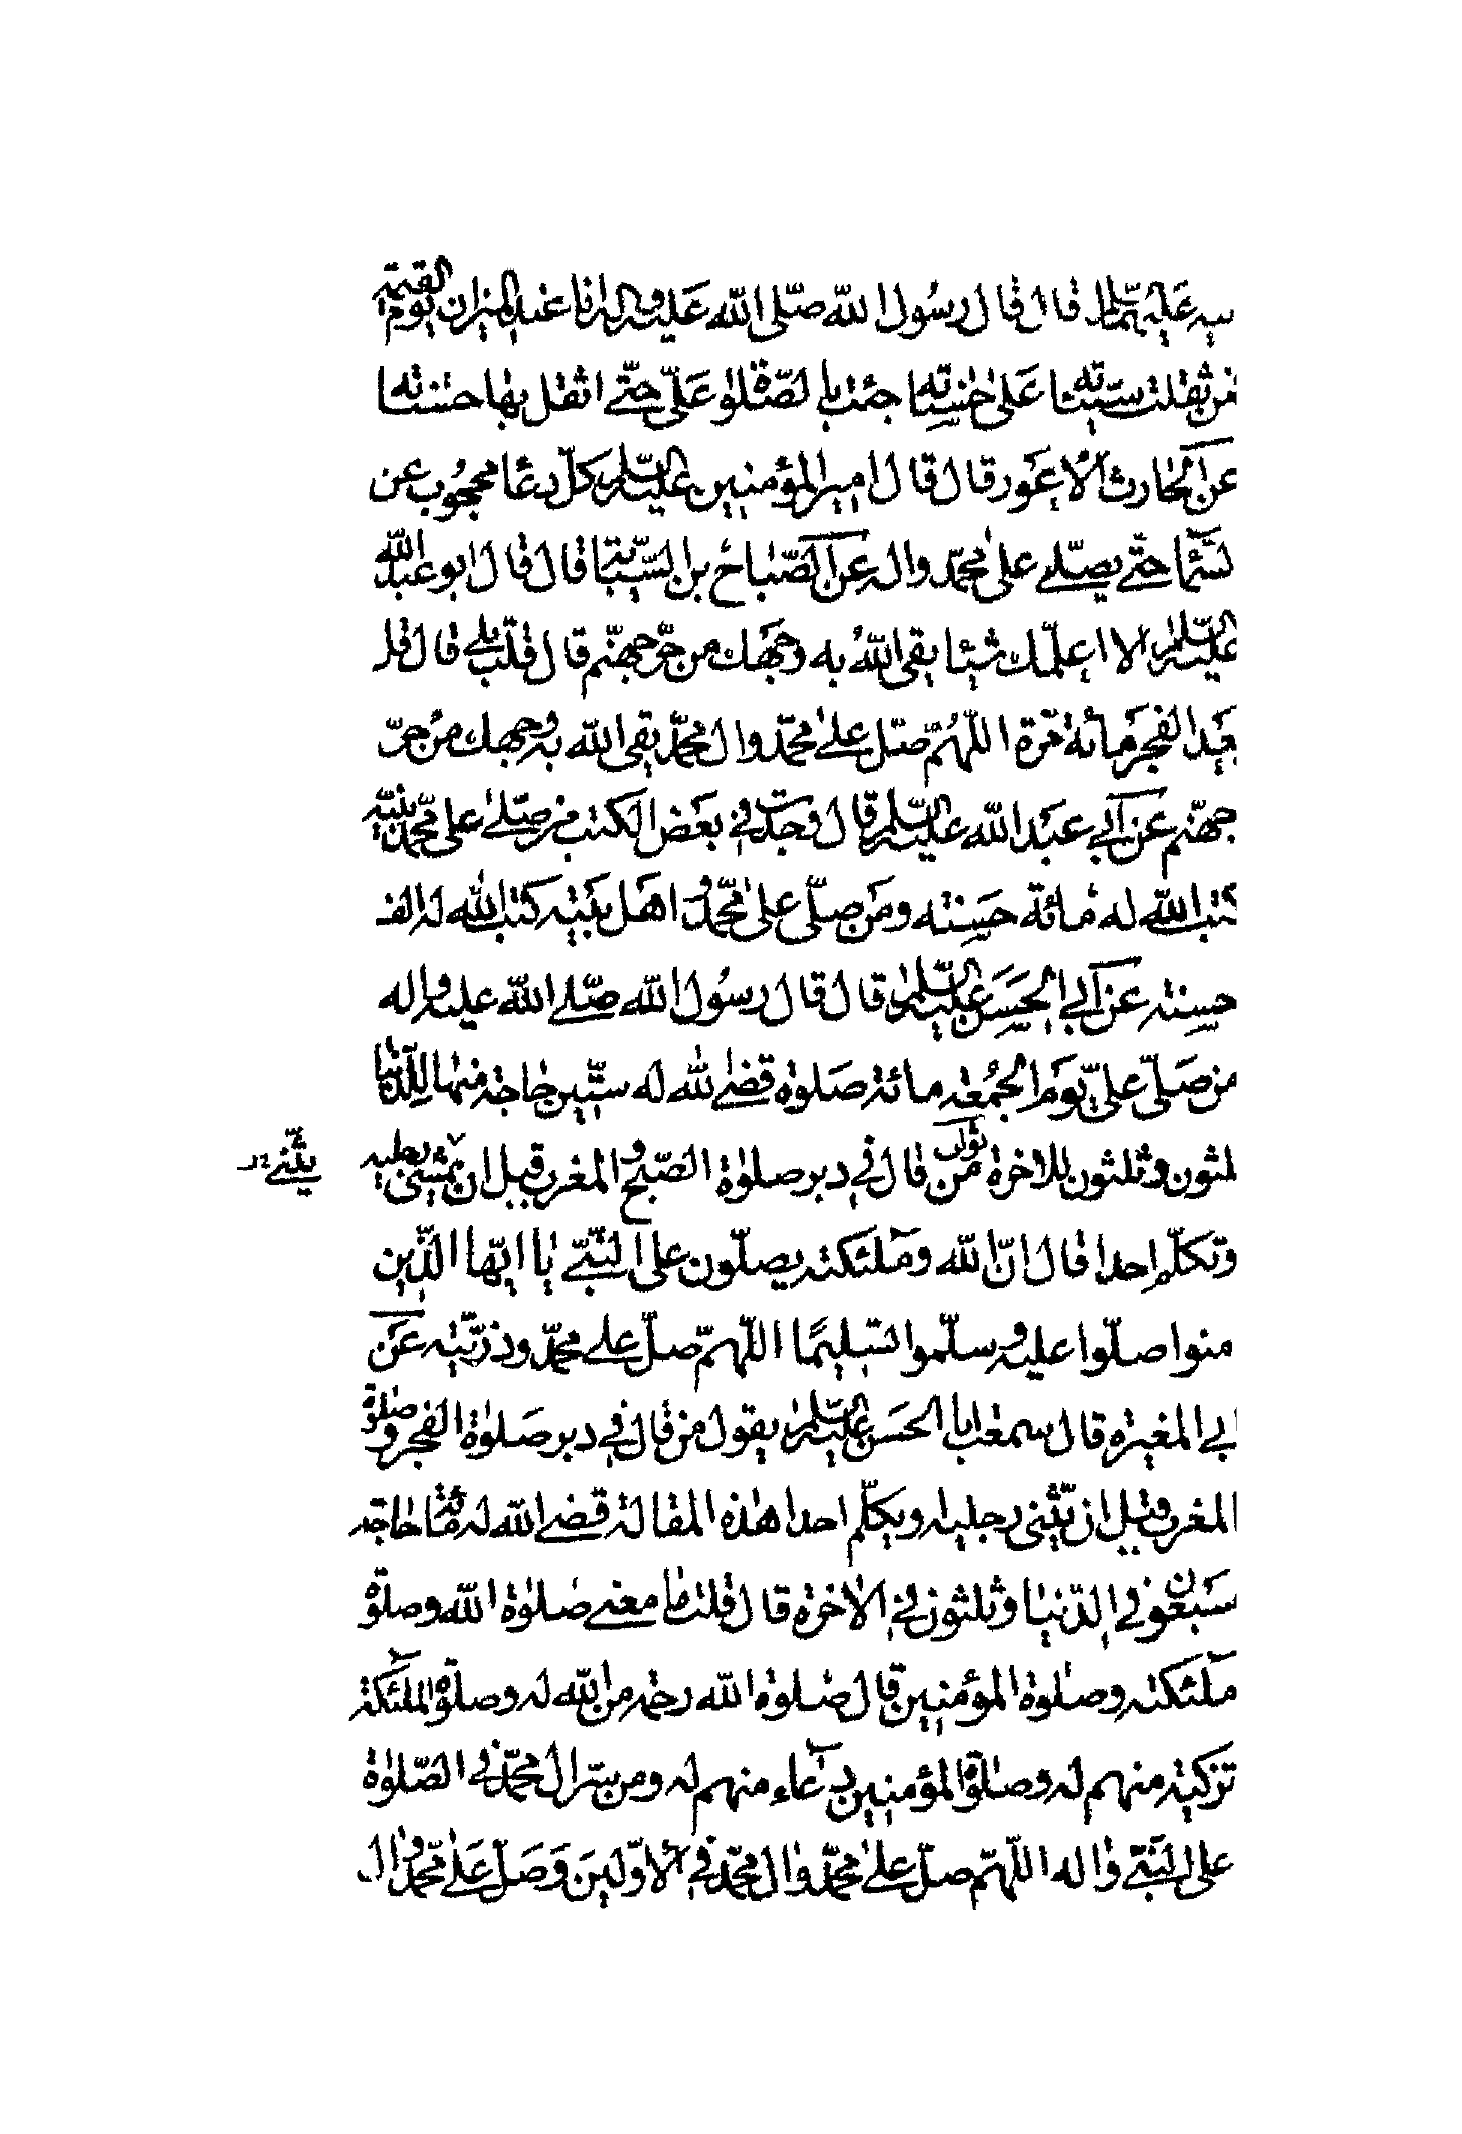 بيه عليهما السلم قال قال رسول الله صلّى الله عليه واله انا عند الميزان يوم القيمة
من ثقلت سيّئاته على حسناته جئت بالصّلوة علىّ حتّى اثقل بها حسناته
عن الحارث الاعور قال قال امير المؤمنين عليه السّلم كلّ دعا محجوب عن
لسّما حتّى يصلّى على محمّد واله عن الصّباح بن السّيابة قال قال ابو عبد الله
عليه السّلم الا اعلّمك شيئا يقى الله به وجهك من حرّ جهنّم قال قلت بلى قال قل
بعد الفجر مائة مرّة اللّهمّ صلّ على محمّد وال محمّد يقى الله به وجهك من حرّ
جهنّم عن ابي عبد الله عليه السّلم قال وجدت في بعض الكتب من صلّى على محمّد نبيّه
كتب الله له مائة حسنة ومن صلّى على محمّد واهل بيته كتب الله له الف
حسنة عن ابي الحسن عليه السّلم قال قال رسول الله صلّى الله عليه واله
من صلّى علىّ يوم الجمعة مائة صلوة قضى الله له ستّين حاجة منها للدّنيا
ثلثون وثلثون للاخرة ثواب من قال في دبر صلوة الصّبح والمغرب قبل ان يثنى رجليه
يثنى
وتكلّم احدا قال انّ الله وملئكته يصلّون على النّبىّ يا ايّها الّذين
منوا صلّوا عليه وسلّموا تسليمًا اللّهمّ صلّ على محمّد وذرّيّته عن
ابي المغيرة قال سمعت ابا الحسن عليه السّلم يقول من قال في دبر صلوة الفجر وصلوة
المغرب قبل ان يثنى رجليه ويكلّم احدا هذه المقالة قضى الله له مائة حاجة
سبعون في الدّنيا وثلثون في الاخرة قال قلت ما معنى صلوة الله وصلوة
ملئكته وصلوة المؤمنين قال صلوة الله رحمة من الله له وصلوة الملئكة
تزكية منهم له وصلوة المؤمنين دعاء منهم له ومن سرّ ال محمّد في الصّلوة
على النّبىّ واله اللّهمّ صلّ على محمّد وال محمّد في الاوّلين وصلّ على محمّد وال